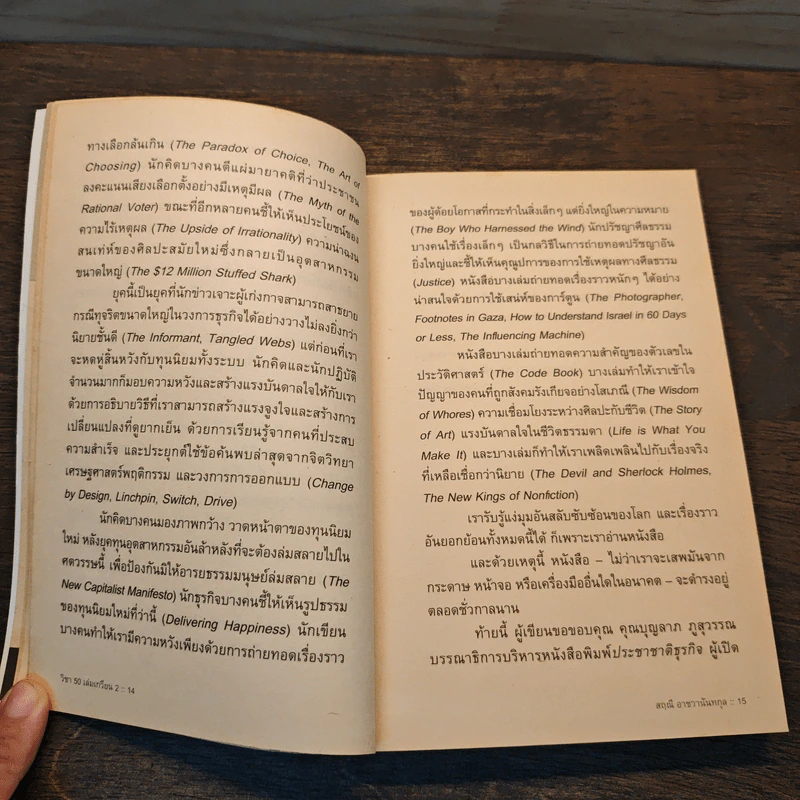 ทางเลือกล้นเกิน (The Paradox of Choice, The Art of
Choosing) นักคิดบางคนตีแผ่มายาคติที่ว่าประชาชน
ลงคะแนนเสียงเลือกตั้งอย่างมีเหตุมีผล (The Myth of the
Rational Voter) ขณะที่อีกหลายคนชี้ให้เห็นประโยชน์ของ
ความไร้เหตุผล (The Upside of Irrationality) ความน่าฉงน
สนเท่ห์ของศิลปะสมัยใหม่ซึ่งกลายเป็นอุตสาหกรรม
ขนาดใหญ่ (The $12 Million Stuffed Shark)
ยุคนี้เป็นยุคที่นักข่าวเจาะผู้เก่งกาจสามารถสาธยาย
กรณีทุจริตขนาดใหญ่ในวงการธุรกิจได้อย่างวางไม่ลงยิ่งกว่า
นิยายชั้นดี (The Informant, Tangled Webs) แต่ก่อนที่เรา
จะหดหู่สิ้นหวังกับทุนนิยมทั้งระบบ นักคิดและนักปฏิบัติ
จำนวนมากก็มอบความหวังและสร้างแรงบันดาลใจให้กับเรา
ด้วยการอธิบายวิธีที่เราสามารถสร้างแรงจูงใจและสร้างการ
เปลี่ยนแปลงที่ดูยากเย็น ด้วยการเรียนรู้จากคนที่ประสบ
ความสำเร็จ และประยุกต์ใช้ข้อค้นพบล่าสุดจากจิตวิทยา
เศรษฐศาสตร์พฤติกรรม และวงการการออกแบบ (Change
by Design, Linchpin, Switch, Drive)
นักคิดบางคนมองภาพกว้าง วาดหน้าตาของทุนนิยม
ใหม่ หลังยุคทุนอุตสาหกรรมอันล้าหลังที่จะต้องล่มสลายไปใน
ศตวรรษนี้ เพื่อป้องกันมิให้อารยธรรมมนุษย์ล่มสลาย (The
New Capitalist Manifesto) นักธุรกิจบางคนชี้ให้เห็นรูปธรรม
ของทุนนิยมใหม่ที่ว่านี้ (Delivering Happiness) นักเขียน
บางคนทำให้เรามีความหวังเพียงด้วยการถ่ายทอดเรื่องราว
วิชา 50 เล่มเกวียน 2 :: 14
ของผู้ด้อยโอกาสที่กระทำในสิ่งเล็กๆ แต่ยิ่งใหญ่ในความหมาย
(The Boy Who Harnessed the Wind) นักปรัชญาศีลธรรม
บางคนใช้เรื่องเล็กๆ เป็นกลวิธีในการถ่ายทอดปรัชญาอัน
ยิ่งใหญ่และชี้ให้เห็นคุณูปการของการใช้เหตุผลทางศีลธรรม
(Justice) หนังสือบางเล่มถ่ายทอดเรื่องราวหนักๆ ได้อย่าง
น่าสนใจด้วยการใช้เสน่ห์ของการ์ตูน (The Photographer,
Footnotes in Gaza, How to Understand Israel in 60 Days
or Less, The Influencing Machine)
หนังสือบางเล่มถ่ายทอดความสำคัญของตัวเลขใน
ประวัติศาสตร์ (The Code Book) บางเล่มทำให้เราเข้าใจ
ปัญญาของคนที่ถูกสังคมรังเกียจอย่างโสเภณี (The Wisdom
of Whores) ความเชื่อมโยงระหว่างศิลปะกับชีวิต (The Story
of Art) แรงบันดาลใจในชีวิตธรรมดา (Life is What You
Make It) และบางเล่มก็ทำให้เราเพลิดเพลินไปกับเรื่องจริง
ที่เหลือเชื่อกว่านิยาย (The Devil and Sherlock Holmes,
The New Kings of Nonfiction)
เรารับรู้แง่มุมอันสลับซับซ้อนของโลก และเรื่องราว
อันยอกย้อนทั้งหมดนี้ได้ ก็เพราะเราอ่านหนังสือ
และด้วยเหตุนี้ หนังสือ – ไม่ว่าเราจะเสพมันจาก
กระดาษ หน้าจอ หรือเครื่องมืออื่นใดในอนาคต – จะดำรงอยู่
ตลอดชั่วกาลนาน
ท้ายนี้ ผู้เขียนขอขอบคุณ คุณบุญลาภ ภูสุวรรณ
บรรณาธิการบริหารหนังสือพิมพ์ประชาชาติธุรกิจ ผู้เปิด
สฤณี อาชวานันทกุล :: 15